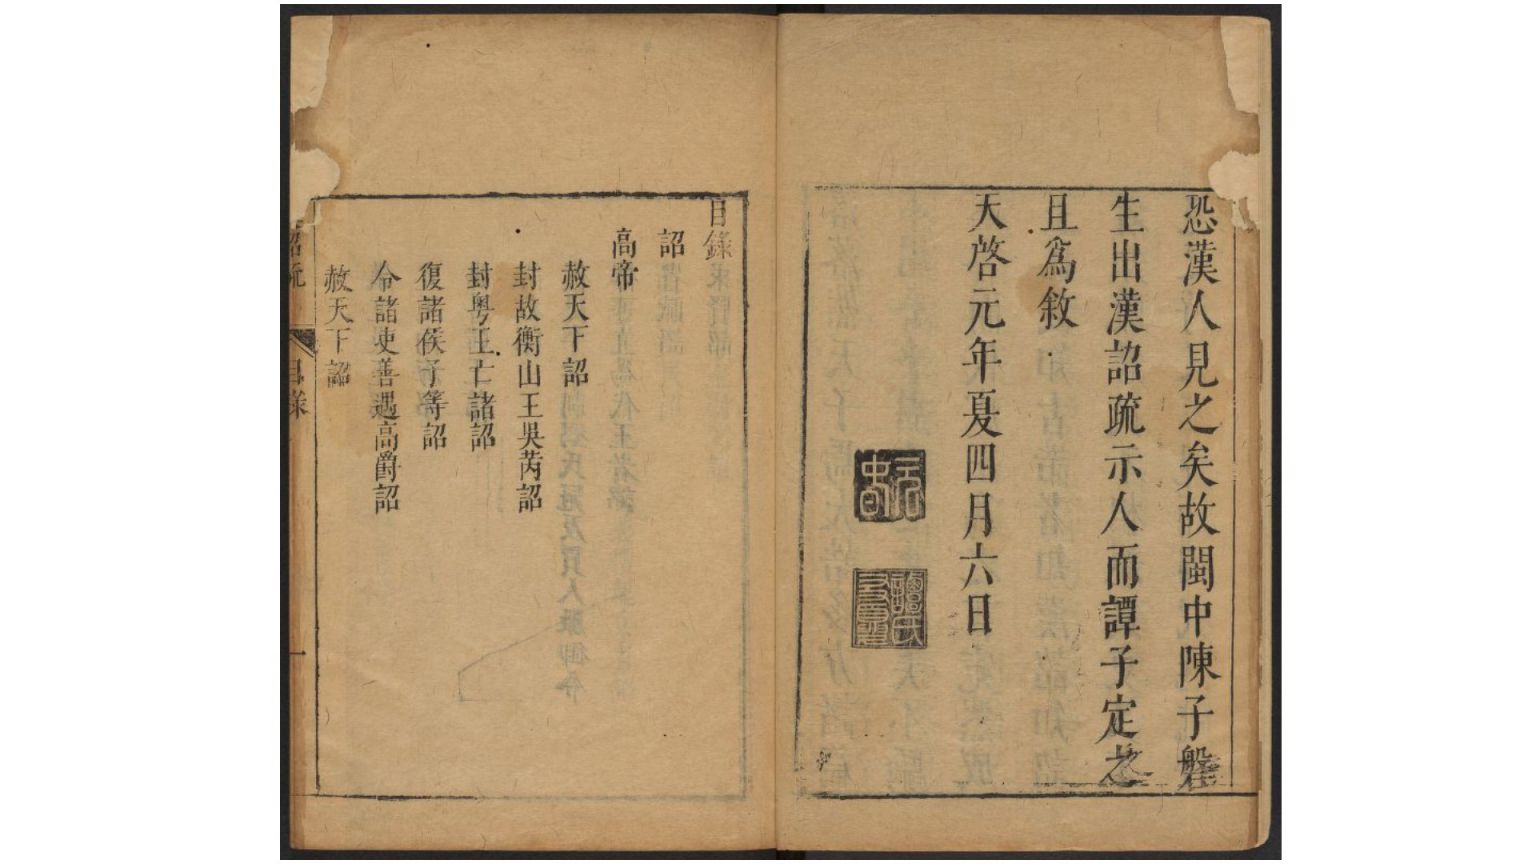 恐漢人見之矣故閩中陳子磐
生出漢詔疏示人而譚子定之
且爲敘
天啓元年夏四月六日
元春
譚氏友夏
目錄
詔
高帝
赦天下詔
封故衡山王吳芮詔
封粵王亡諸詔
復諸侯子等詔
令諸吏善遇高爵詔
赦天下詔
詔疏
目錄
一